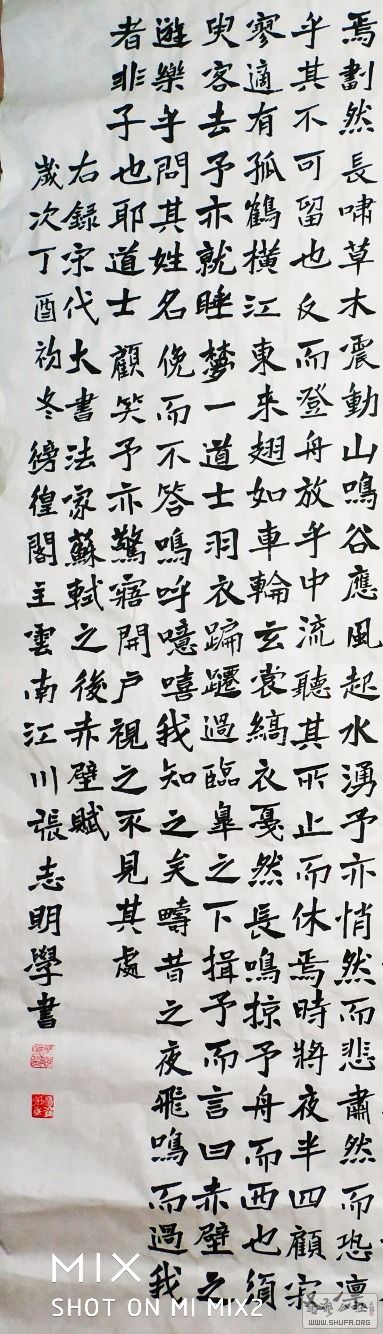 焉劃然長嘯草木震動山鳴谷應風起水湧予亦悄然而悲肅然而恐凜
乎其不可留也反而登舟放乎中流聽其所止而休焉時將夜半四顧寂
寥適有孤鶴橫江東來翅如車輪玄裳縞衣戛然長鳴掠予舟而西也須
臾客去予亦就睡夢一道士羽衣蹁躚過臨皋之下揖予而言曰赤壁之
遊樂乎問其姓名俛而不答嗚呼噫嘻我知之矣疇昔之夜飛鳴而過我
者非子也耶道士顧笑予亦驚寤開戶視之不見其處
右錄宋代大書法家蘇軾之後赤壁賦
歲次丁酉初冬徬徨閣主雲南江川張志明學書
MIX
SHOT ON MI MIX2
WWW.SHUFA.ORG